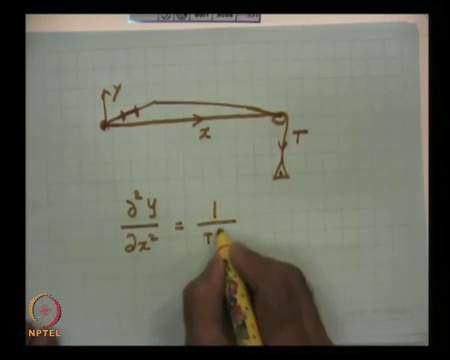 y
x
T
∂²y/∂x² = 1/T
NPTEL